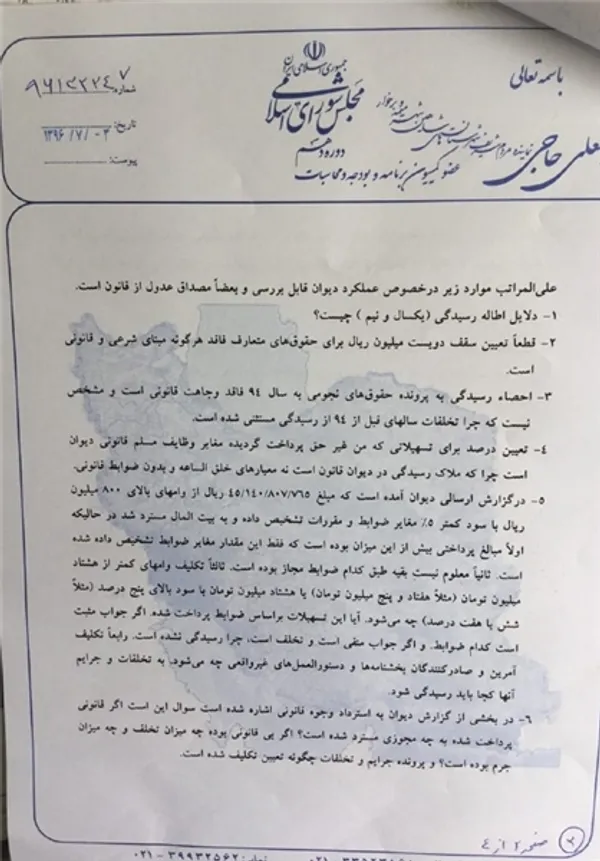 باسمه تعالی
جمهوری اسلامی ایران
مجلس شورای اسلامی
دوره دهم
عضو کمیسیون برنامه و بودجه و محاسبات
حاجی
نماینده مردم
شماره: ۹۶۱۳۲۴۷
تاریخ: ۱۳۹۶/۷/۰۳
پیوست:
علی‌المراتب موارد زیر درخصوص عملکرد دیوان قابل بررسی و بعضاً مصداق عدول از قانون است.
۱- دلایل اطاله رسیدگی (یکسال و نیم ) چیست؟
۲- قطعاً تعیین سقف دویست میلیون ریال برای حقوق‌های متعارف فاقد هرگونه مبنای شرعی و قانونی
است.
۳- احصاء رسیدگی به پرونده حقوق‌های نجومی به سال ۹۴ فاقد وجاهت قانونی است و مشخص
نیست که چرا تخلفات سالهای قبل از ۹۴ از رسیدگی مستثنی شده است.
۴- تعیین درصد برای تسهیلاتی که من غیر حق پرداخت گردیده مغایر وظایف مسلم قانونی دیوان
است چرا که ملاک رسیدگی در دیوان قانون است نه معیارهای خلق الساعه و بدون ضوابط قانونی.
۵- درگزارش ارسالی دیوان آمده است که مبلغ ۴۵/۱۴۰/۸۰۷/۷۶۵ ریال از وامهای بالای ۸۰۰ میلیون
ریال با سود کمتر ۵٪ مغایر ضوابط و مقررات تشخیص داده و به بیت المال مسترد شد در حالیکه
اولاً مبالغ پرداختی بیش از این میزان بوده است که فقط این مقدار مغایر ضوابط تشخیص داده شده
است. ثانیاً معلوم نیست بقیه طبق کدام ضوابط مجاز بوده است. ثالثاً تکلیف وامهای کمتر از هشتاد
میلیون تومان (مثلاً هفتاد و پنج میلیون تومان) یا هشتاد میلیون تومان با سود بالای پنج درصد (مثلاً
شش یا هفت درصد) چه می‌شود. آیا این تسهیلات براساس ضوابط پرداخت شده. اگر جواب مثبت
است کدام ضوابط. و اگر جواب منفی است و تخلف است، چرا رسیدگی نشده است. رابعاً تکلیف
آمرین و صادرکنندگان بخشنامه‌ها و دستورالعمل‌های غیرواقعی چه می‌شود. به تخلفات و جرایم
آنها کجا باید رسیدگی شود.
۶- در بخشی از گزارش دیوان به استرداد وجوه قانونی اشاره شده است سوال این است اگر قانونی
پرداخت شده به چه مجوزی مسترد شده است؟ اگر بی قانونی بوده چه میزان تخلف و چه میزان
جرم بوده است؟ و پرونده جرایم و تخلفات چگونه تعیین تکلیف شده است.
صفحه ۲ از ۴
۲